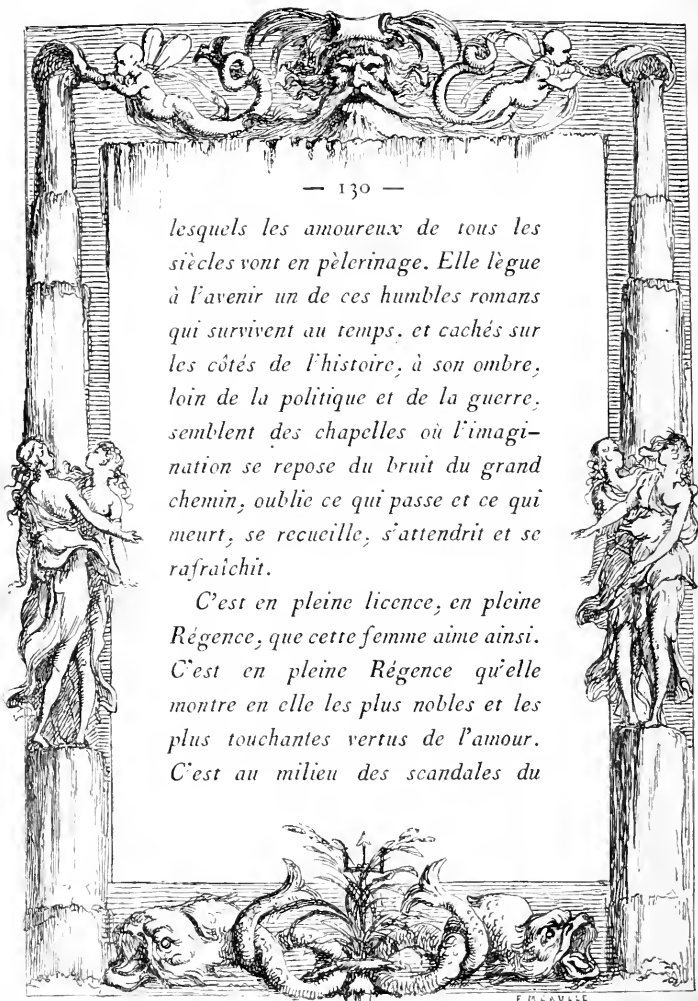 — 130 —
lesquels les amoureux de tous les
siècles vont en pèlerinage. Elle lègue
à l'avenir un de ces humbles romans
qui survivent au temps, et cachés sur
les côtés de l'histoire, à son ombre,
loin de la politique et de la guerre,
semblent des chapelles où l'imagi-
nation se repose du bruit du grand
chemin, oublie ce qui passe et ce qui
meurt, se recueille, s'attendrit et se
rafraîchit.
C'est en pleine licence, en pleine
Régence, que cette femme aime ainsi.
C'est en pleine Régence qu'elle
montre en elle les plus nobles et les
plus touchantes vertus de l'amour.
C'est au milieu des scandales du
F MÉAULLE